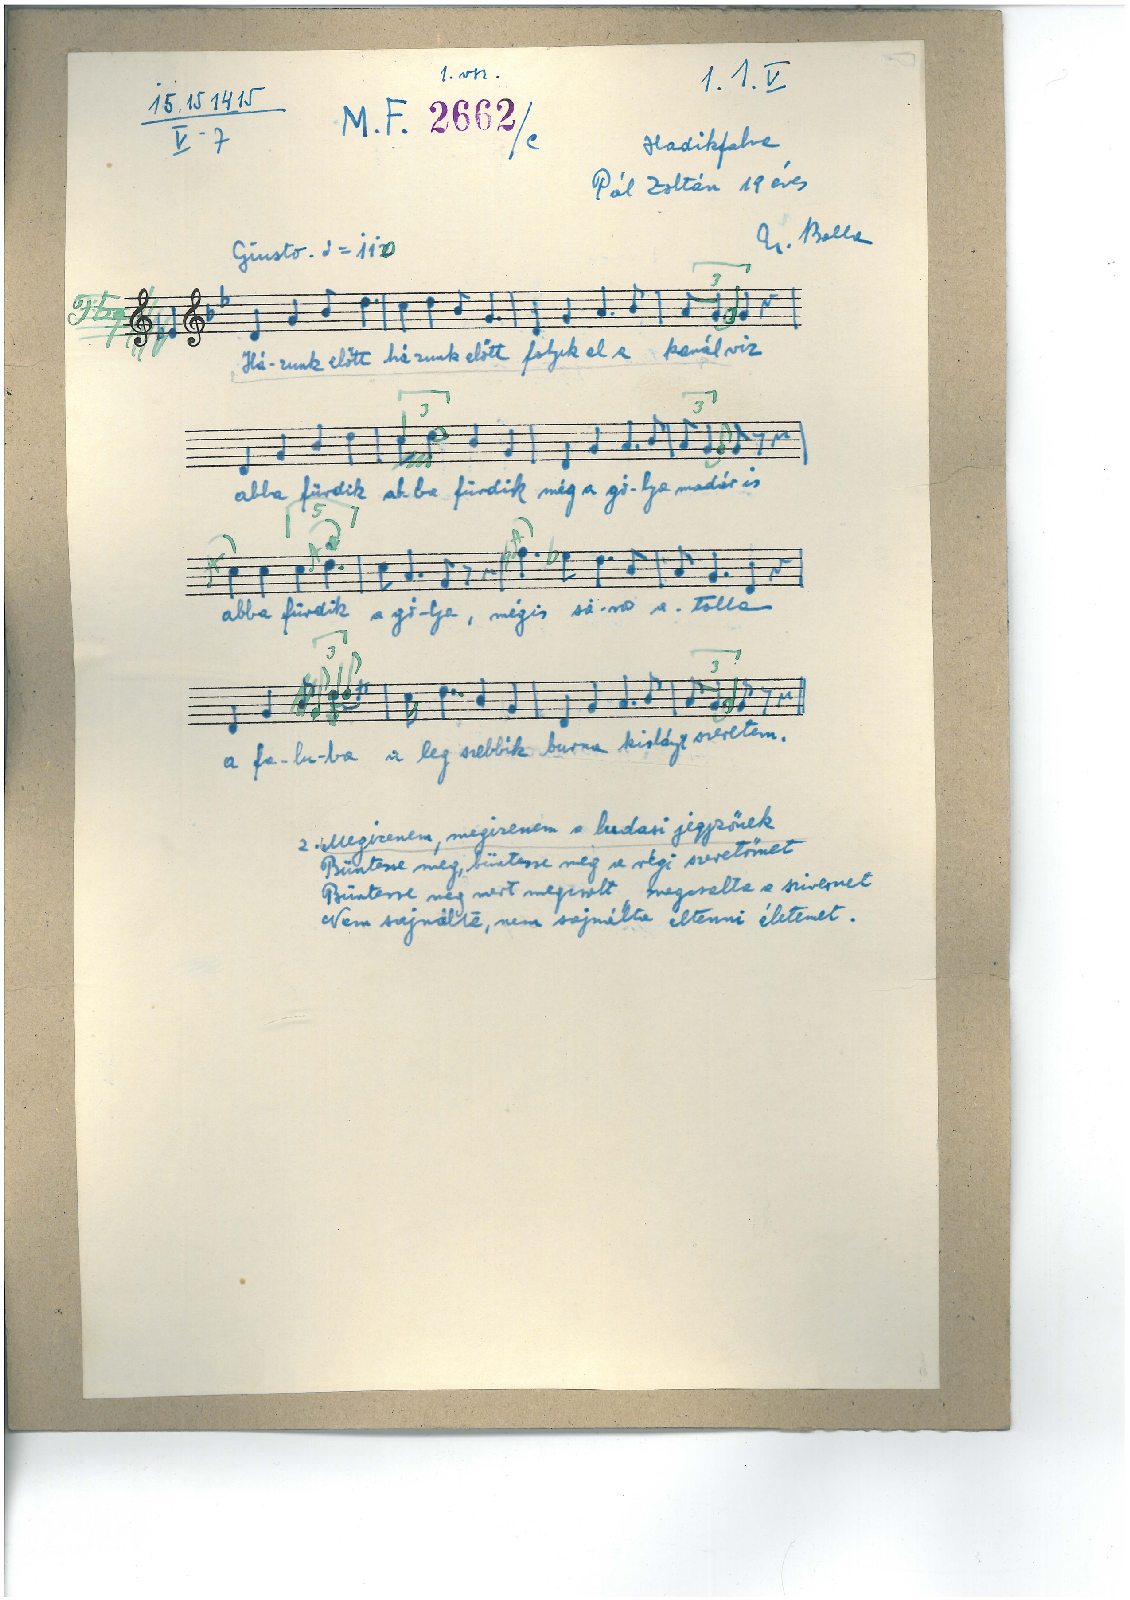 1. vsz.
1. 1. V
15 15 14 15
V - 7
M.F. 2662/c
Hadikfalva
Pál Zoltán 19 éves
Balla
Giusto.
3
Há-zunk előtt házunk előtt folyik el a kanálviz
3 3
abba fürdik ab-ba fürdik még a gó-lya madár is
5
abba fürdik a gó-lya, mégis sá-ros a tolla
3 3
a fa-lu-ba a leg szebbik burna kislányt szeretem.
2. Megizenem, megizenem a ludasi jegyzőnek
Büntesse meg, büntesse meg a régi szeretőmet
Büntesse meg mert megcsalt, megcsalta a szivemet
Nem sajnálta, nem sajnálta eltenni életemet.